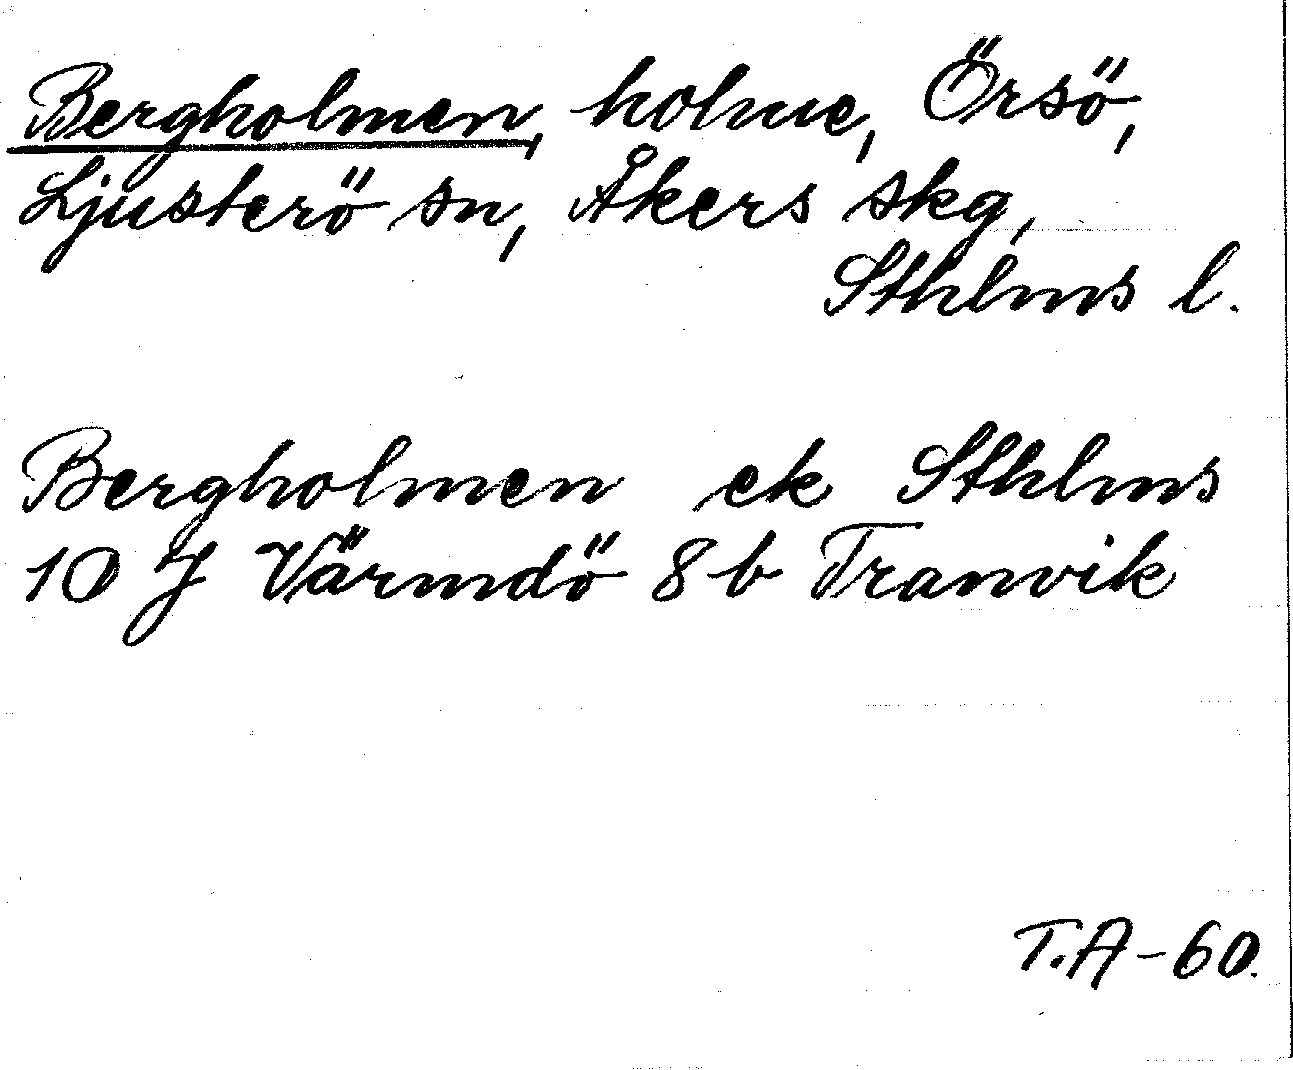 Bergholmen, holme, Örsö,
Ljusterö sn, Åkers skg,
Sthlms l.
Bergholmen ek Sthlms
10 J Värmdö 8 b Tranvik
T.A-60.